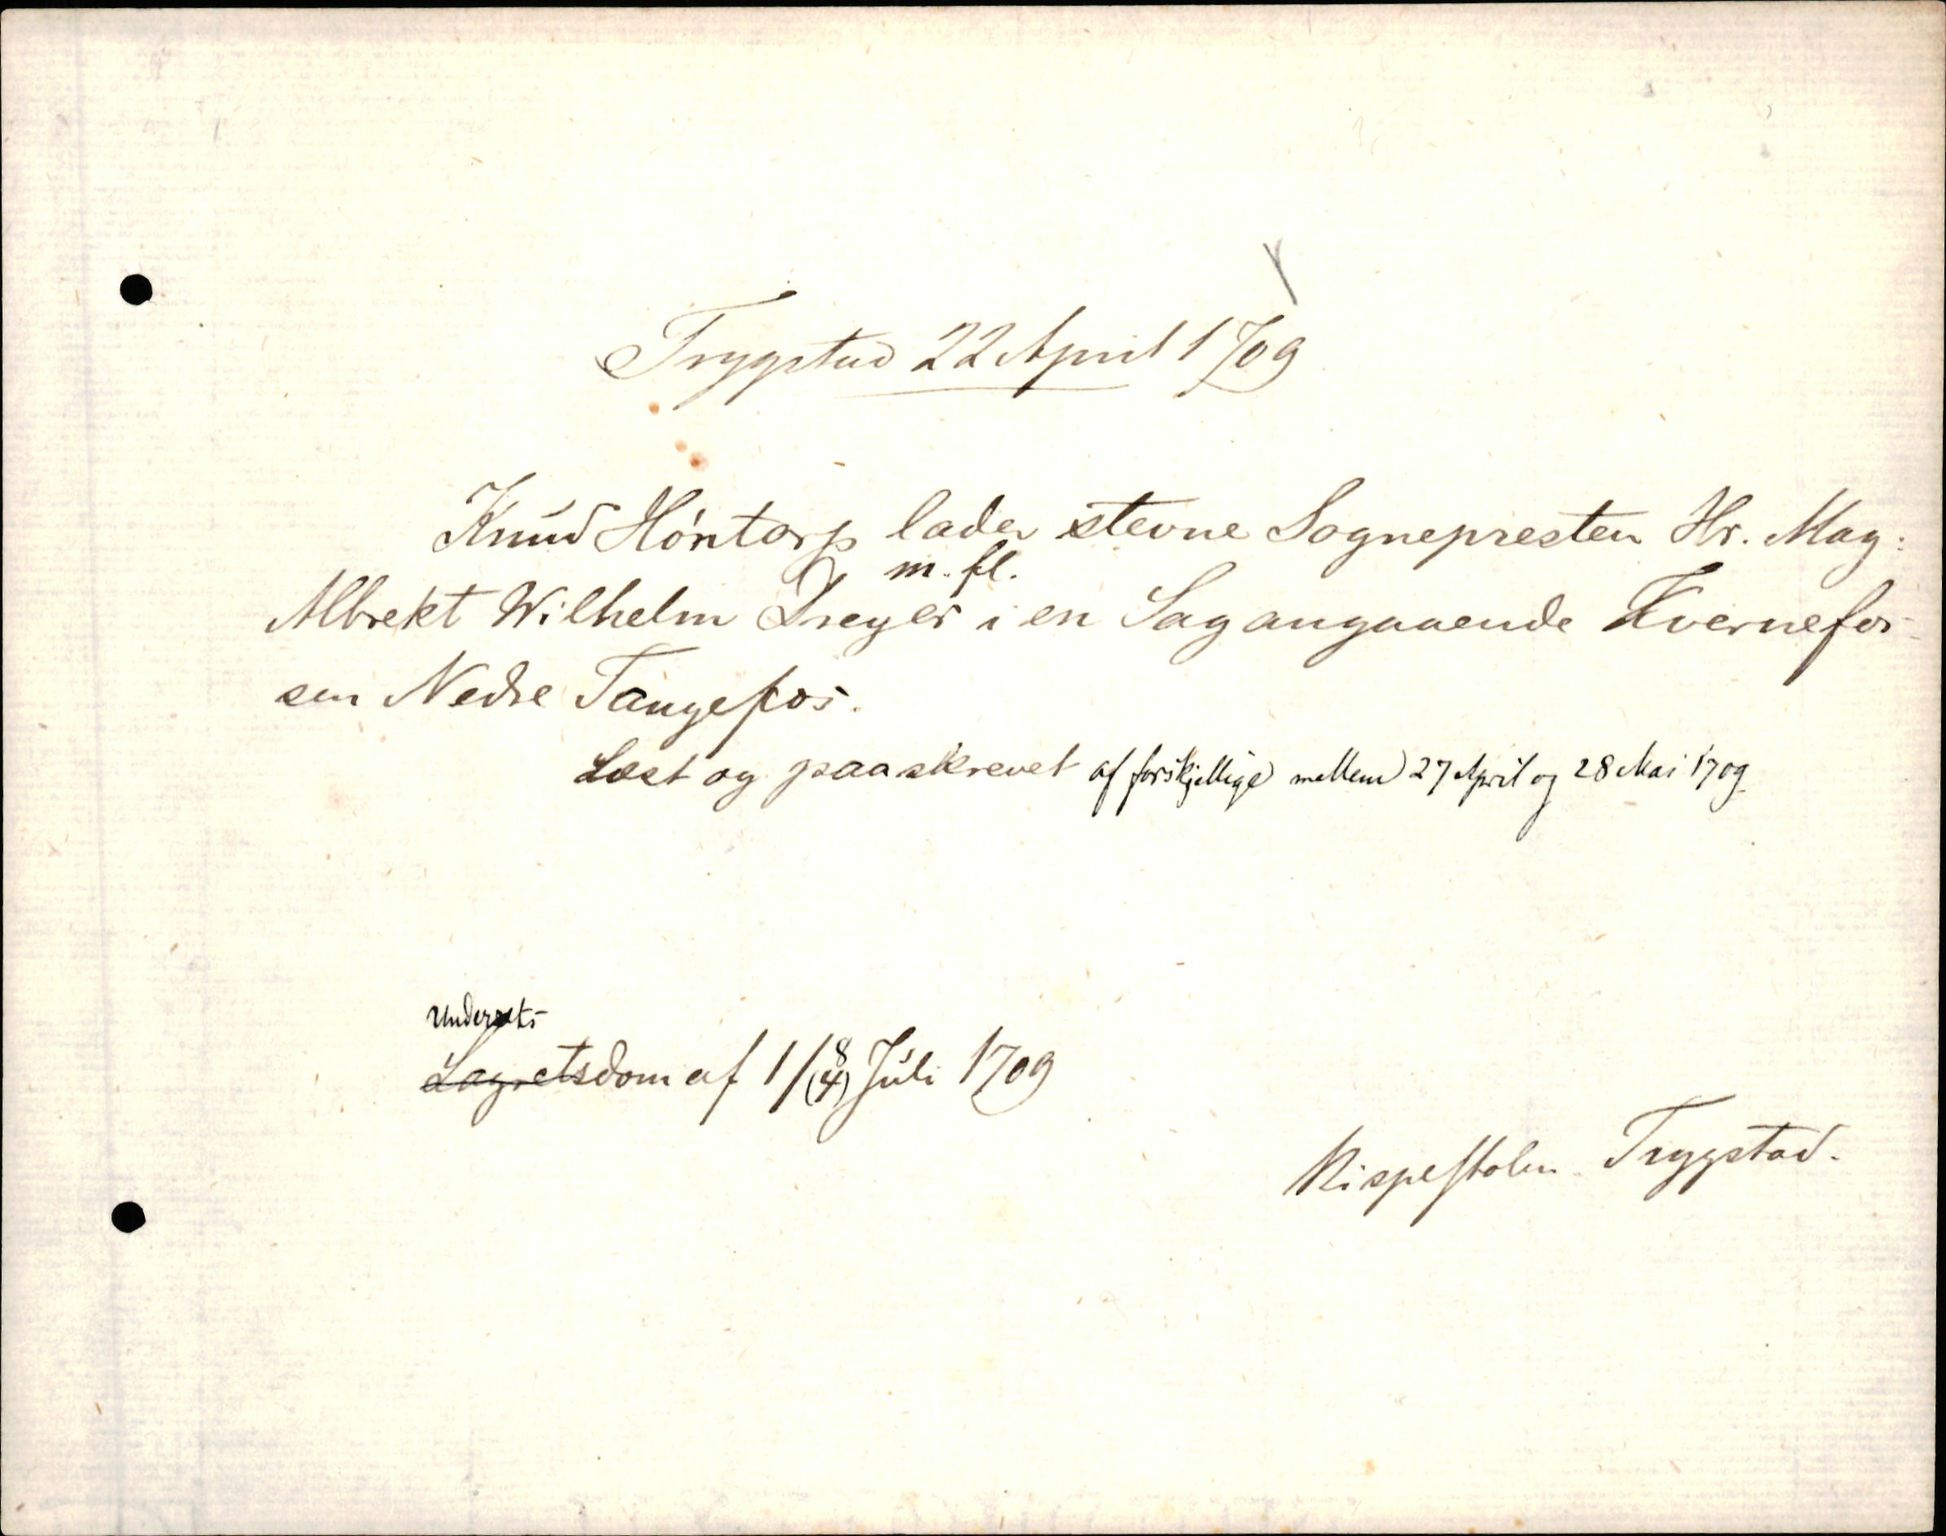 Trygstad 22 April 1709
Knud Höntorp lader stevne Sognepresten Hr. Mag:
m. fl.
Albrekt Wilhelm Dreyer i en Sag angaaende Kvernefos-
sen Nedre Tangefos.
Læst og paaskrevet af forskjellige mellem 27 April og 28 Mai 1709
Underrets-
Lagretsdom af 1/(4) 8 Júli 1709
Trygstad.